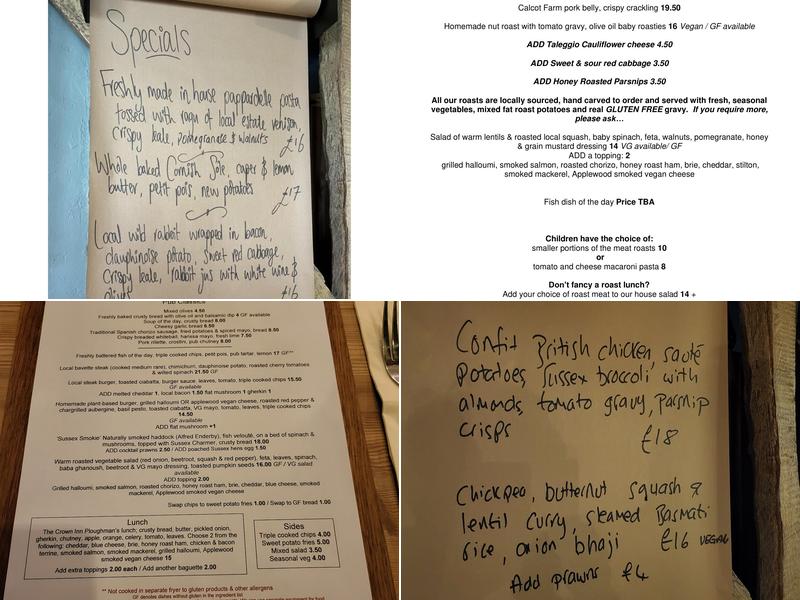 Specials
Freshly made in house pappardelle pasta
tossed with ragu of local estate venison,
crispy kale, pomegranate & walnuts
£16
Whole baked Cornish Sole, caper & lemon
butter, petit pois, new potatoes
£17
Local wild rabbit wrapped in bacon,
dauphinoise potato, sweet red cabbage,
Crispy kale, rabbit jus with white wine &
olives
£16
Calcot Farm pork belly, crispy crackling 19.50
Homemade nut roast with tomato gravy, olive oil baby roasties 16 Vegan / GF available
ADD Taleggio Cauliflower cheese 4.50
ADD Sweet & sour red cabbage 3.50
ADD Honey Roasted Parsnips 3.50
All our roasts are locally sourced, hand carved to order and served with fresh, seasonal
vegetables, mixed fat roast potatoes and real GLUTEN FREE gravy. If you require more,
please ask…
Salad of warm lentils & roasted local squash, baby spinach, feta, walnuts, pomegranate, honey
& grain mustard dressing 14 VG available/ GF
ADD a topping: 2
grilled halloumi, smoked salmon, roasted chorizo, honey roast ham, brie, cheddar, stilton,
smoked mackerel, Applewood smoked vegan cheese
Fish dish of the day Price TBA
Children have the choice of:
smaller portions of the meat roasts 10
or
tomato and cheese macaroni pasta 8
Don't fancy a roast lunch?
Add your choice of roast meat to our house salad 14 +
Pub Classics
Mixed olives 4.50
Freshly baked crusty bread with olive oil and balsamic dip 4 GF available
Soup of the day, crusty bread 8.00
Cheesy garlic bread 6.50
Traditional Spanish chorizo sausage, fried potatoes & spiced mayo, bread 8.50
Crispy breaded whitebait, harissa mayo, fresh lime 7.50
Pork rillette, crostini, pub chutney 8.00
Freshly battered fish of the day, triple cooked chips, petit pois, pub tartar, lemon 17 GF**
Local bavette steak (cooked medium rare), chimichurri, dauphinoise potato, roasted cherry tomatoes
& wilted spinach 21.50 GF
Local steak burger, toasted ciabatta, burger sauce, leaves, tomato, triple cooked chips 15.50
GF available
ADD melted cheddar 1, local bacon 1.50 fat mushroom 1 gherkin 1
Homemade plant-based burger, grilled halloumi OR applewood vegan cheese, roasted red pepper &
chargrilled aubergine, basil pesto, toasted ciabatta, VG mayo, tomato, leaves, triple cooked chips
14.50
GF available
ADD flat mushroom +1
'Sussex Smokie' Naturally smoked haddock (Alfred Enderby), fish velouté, on a bed of spinach &
mushrooms, topped with Sussex Charmer, crusty bread 18.00
ADD cocktail prawns 2.50 / ADD poached Sussex hens egg 1.50
Warm roasted vegetable salad (red onion, beetroot, squash & red pepper), feta, leaves, spinach,
baba ghanoush, beetroot & VG mayo dressing, toasted pumpkin seeds 16.00 GF / VG salad
available
ADD topping 2.00
Grilled halloumi, smoked salmon, roasted chorizo, honey roast ham, brie, cheddar, blue cheese, smoked
mackerel, Applewood smoked vegan cheese
Swap chips to sweet potato fries 1.00 / Swap to GF bread 1.00
Lunch
The Crown Inn Ploughman's lunch; crusty bread, butter, pickled onion,
gherkin, chutney, apple, orange, celery, tomato, leaves. Choose 2 from the
following: cheddar, blue cheese, brie, honey roast ham, chicken & bacon
terrine, smoked salmon, smoked mackerel, grilled halloumi, Applewood
smoked vegan cheese 15
Add extra toppings 2.00 each / Add another baguette 2.00
Sides
Triple cooked chips 4.00
Sweet potato fries 5.00
Mixed salad 3.50
Seasonal veg 4.00
** Not cooked in separate fryer to gluten products & other allergens
GF denotes dishes without gluten in the ingredient list
Confit British chicken, sauté
potatoes, Sussex broccoli with
almonds, tomato gravy, parsnip
crisps
£18
Chickpea, butternut squash &
lentil curry, steamed Basmati
rice, onion bhaji £16 VEGAN
Add prawns £4